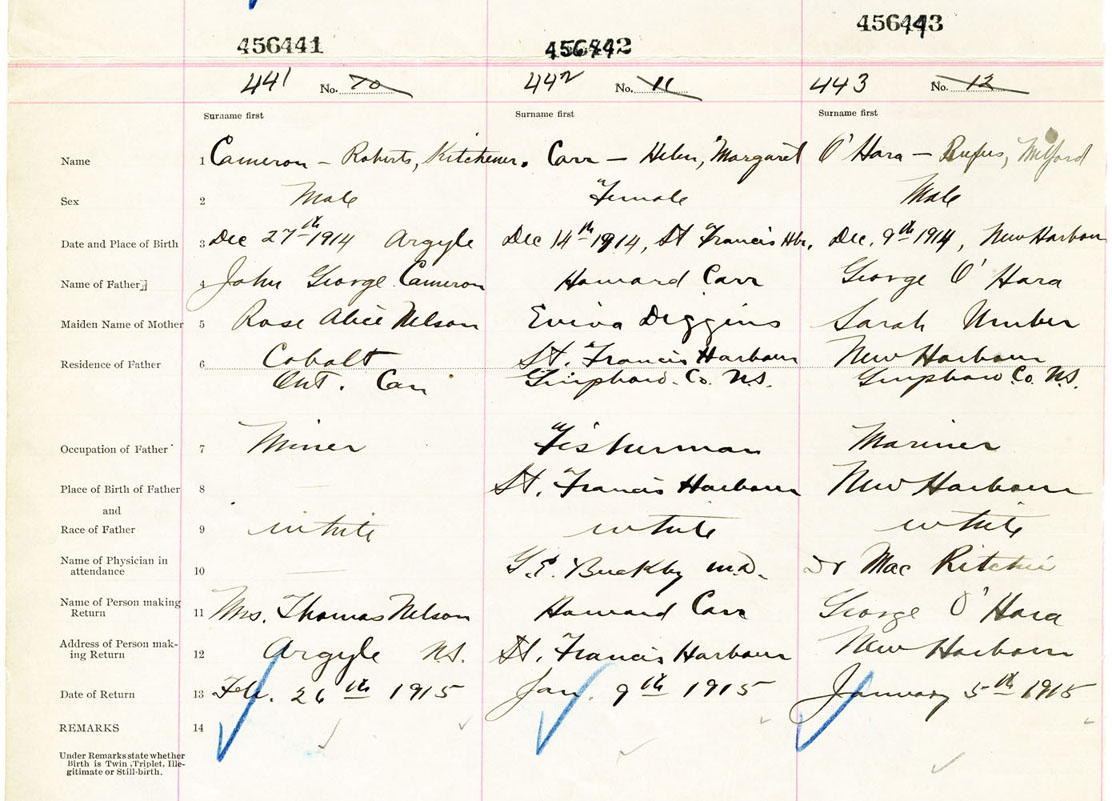 456441 456442 456443
441 No. 10 442 No. 11 443 No. 12
Surname first Surname first Surname first
Name 1 Cameron – Roberts, Kitchener. Carr – Helen, Margaret O'Hara – Rufus, Milford
Sex 2 Male Female Male
Date and Place of Birth 3 Dec 27th 1914 Argyle Dec 14th 1914, St Francis Hbr. Dec. 9th 1914, New Harbour
Name of Father 4 John George Cameron Howard Carr George O'Hara
Maiden Name of Mother 5 Rose Alice Nelson Diggins Sarah
Residence of Father 6 Cobalt St. Francis Harbour New Harbour
Ont. Can Co. N.S. Co. N.S.
Occupation of Father 7 Miner Fisherman Mariner
Place of Birth of Father 8 — St. Francis Harbour New Harbour
and
Race of Father 9 white white white
Name of Physician in
attendance 10 — G.E. Buckley M.D. Dr Mac Ritchie
Name of Person making
Return 11 Mrs. Thomas Nelson Howard Carr George O'Hara
Address of Person mak-
ing Return 12 Argyle N.S. St. Francis Harbour New Harbour
Date of Return 13 Feb. 26th 1915 Jan. 9th 1915 January 5th 1915
REMARKS 14
Under Remarks state whether
Birth is Twin, Triplet, Ille-
gitimate or Still-birth.